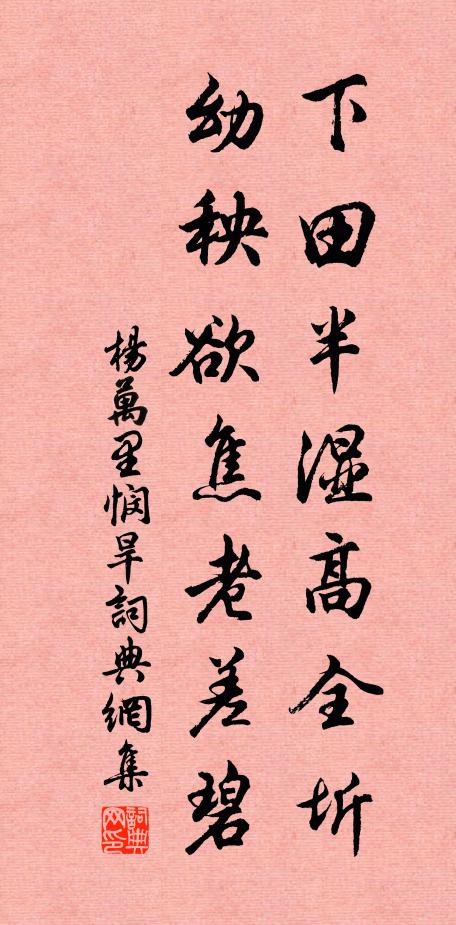 下田半湿高全坼
幼秧欲焦老差碧
楊萬里憫旱詞典網集
詞典網印